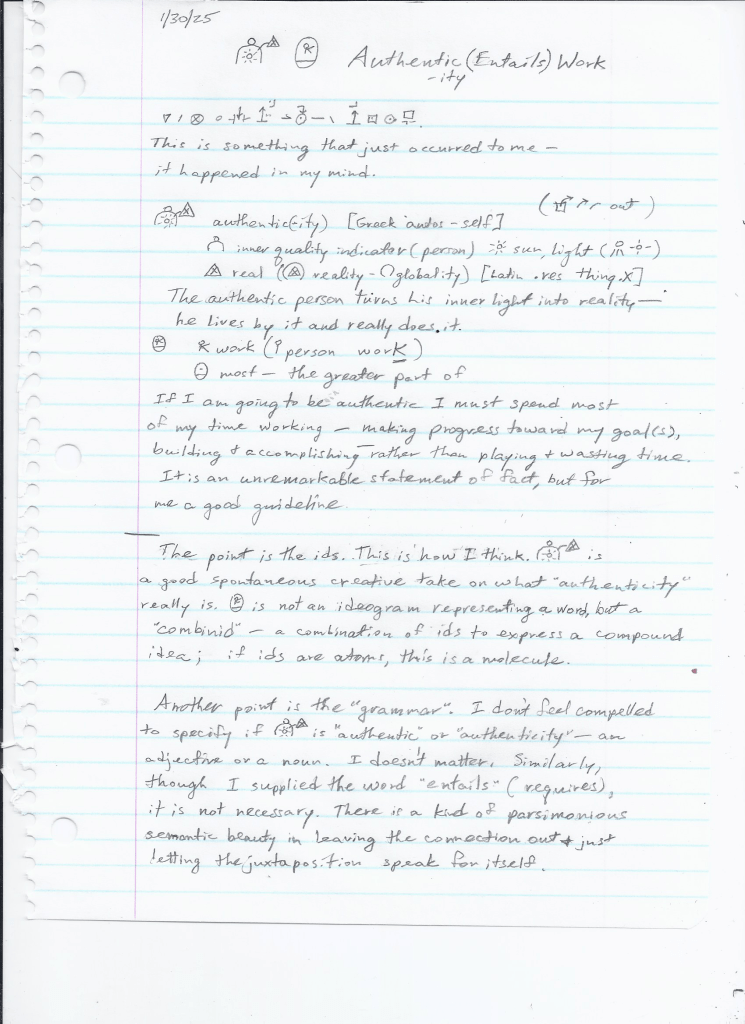 1/30/25
Authentic (Entails) Work
-ity
This is something that just occurred to me —
it happened in my mind.
( out )
authentic(-ity) [Greek autos - self]
inner quality indicator (person) sun, light ( )
real ( reality - globality) [Latin res thing.X]
The authentic person turns his inner light into reality —
he lives by it and really does it.
work ( person work )
most — the greater part of
If I am going to be authentic I must spend most
of my time working — making progress toward my goal(s),
building & accomplishing rather than playing & wasting time.
It is an unremarkable statement of fact, but for
me a good guideline.
The point is the ids. This is how I think. is
a good spontaneous creative take on what "authenticity"
really is. is not an ideogram representing a word, but a
"combinid" — a combination of ids to express a compound
idea; if ids are atoms, this is a molecule.
Another point is the "grammar". I don't feel compelled
to specify if is "authentic" or "authenticity" — an
adjective or a noun. I doesn't matter. Similarly,
though I supplied the word "entails" (requires),
it is not necessary. There is a kind of parsimonious
semantic beauty in leaving the connection out & just
letting the juxtaposition speak for itself.